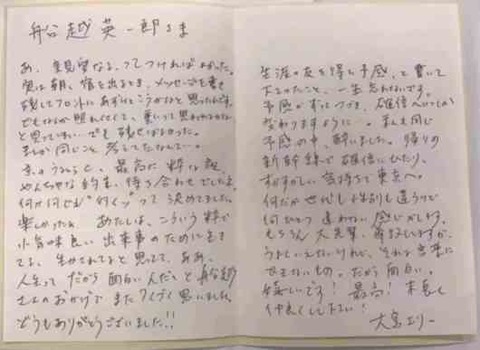 船越英一郎さま
実は朝、宿を出るとき、メッセージを書き
残してフロントにあずけとこうかなと思ったんです。
でもなんか照れくさくて、重いって思われるかな
と思って でも残せばよかった。
まさか同じこと考えてたなんて…。
最高に粋な
やんちゃな約束、待ち合わせでした
って決めてました。
楽しかったぁ あたしは、こういう粋で
小気味良い出来事のために生き
てる、生かされてると思ってて、ああ、
人生って だから面白いんだと船越
さんのおかげで またつくづく思いました。
どうもありがとうございました!!
生涯の友を得た予感、と書いて
下さったこと、一生忘れないです。
予感がずっとつづき、確信へといつか
変わりますように…。私も同じ
予感の中、酔いました。帰りの
新幹線で確信にひたり、
すがすがしい気持ちで東京へ。
何だか世代も性別も違うのに
何ひとつ違わない感じがします。
もちろん大先輩、
それは言葉に
できないもの。だから面白い。
嬉しいです！最高！末長く
仲良くして下さい！
大宮エリー